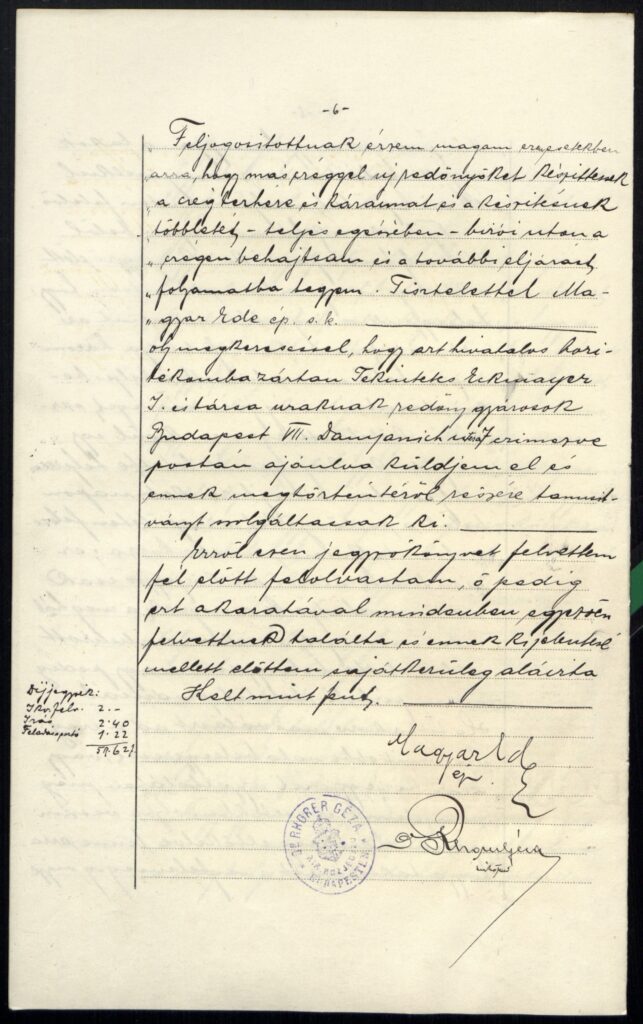 -6-
„Feljogositottnak érzem magam ezen esetekben
„arra, hogy más céggel új redőnyöket készittessek
„a cég terhére és káraimat és a készitésnek
„többletét - teljes egészében - birói uton a
„cégen behajtsam és a további eljárást
„folyamatba tegyem. Tisztelettel Ma-
„gyar Ede ép. s. k.
oly megkereséssel, hogy azt hivatalos bori-
tékomba zártan Tekintetes
J. és társa uraknak redőny gyárosok
Budapest VII. Damjanich utca 7 czimezve
postán ajánlva küldjem el és
ennek megtörténtéről részére tanusit-
ványt szolgáltassak ki.
Erről ezen jegyzőkönyvet felvettem
fél előtt felolvastam, ő pedig
ezt akaratával mindenben egyezően
felvettnek találta és ennek kijelentése
mellett előttem sajátkezüleg aláirta
Kelt mint fent.
Díjjegyzék:
Jkv. felv. 2.-
Irás 2.40
Feladási portó 1.22
Magyar Ed
E
Dr Rhorer Géza
Dr RHORER GÉZA
KIR. KÖZJEGYZŐ
BUDAPESTEN